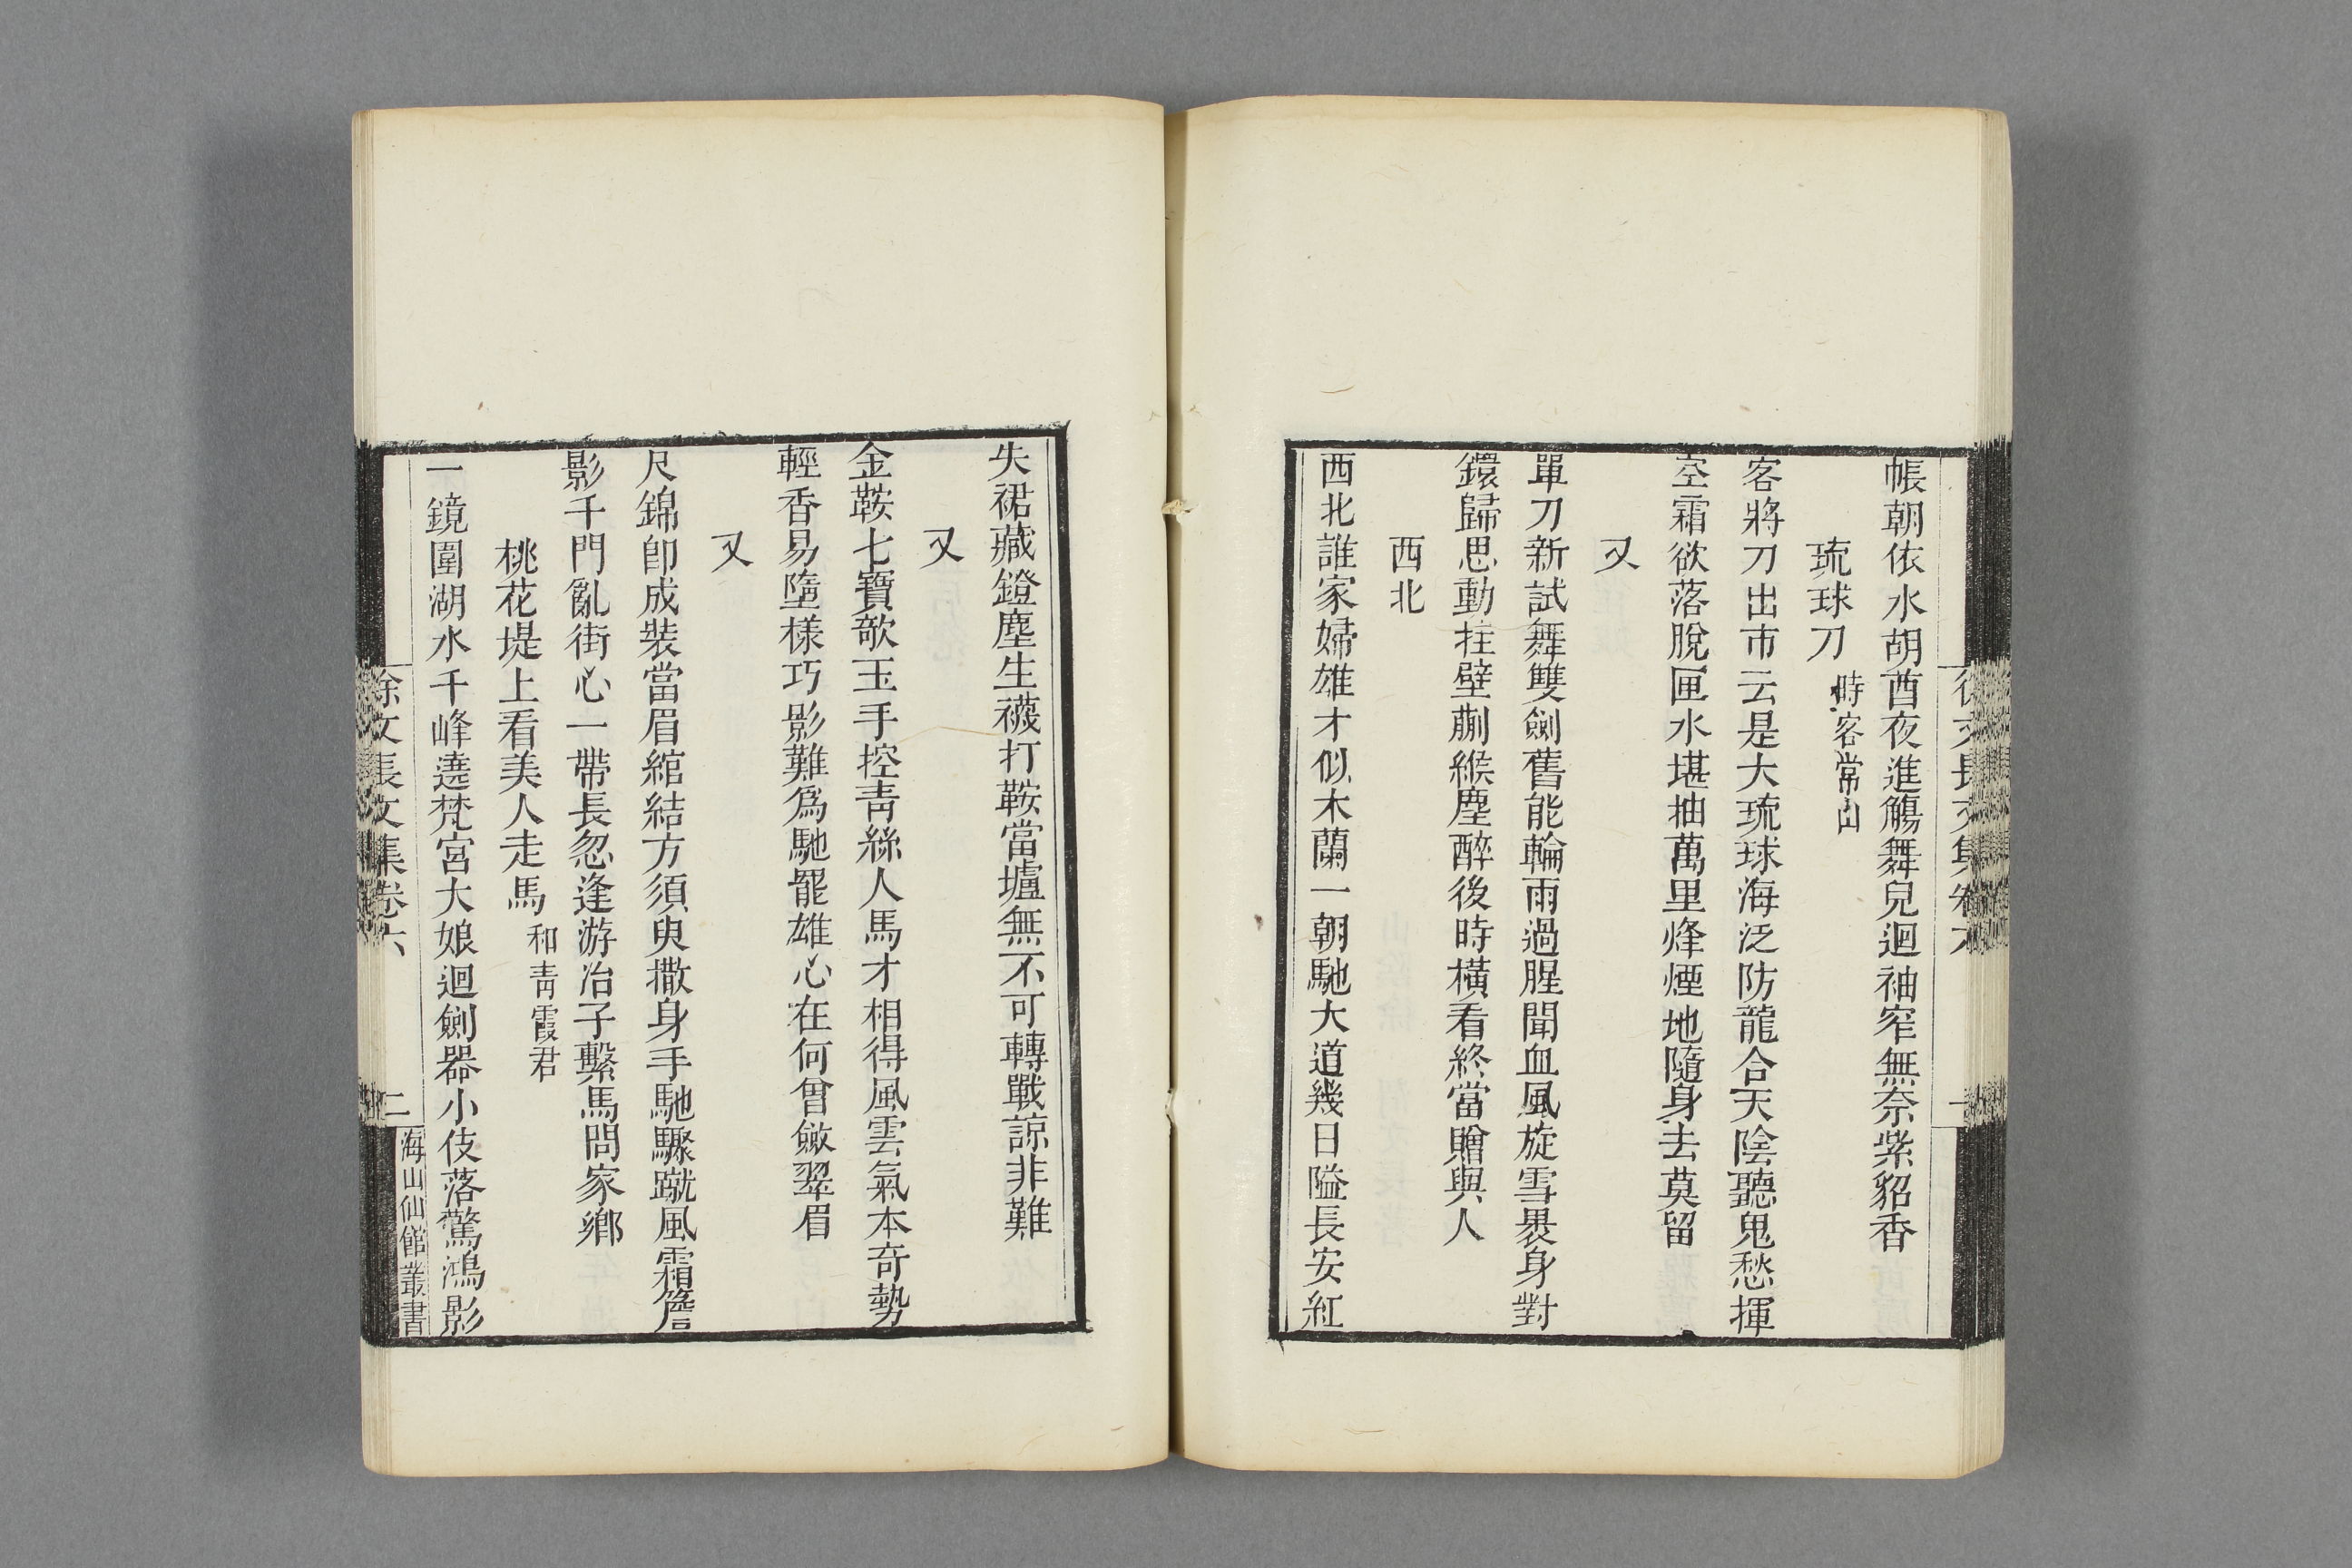 帳朝依水胡酋夜進觴舞兒迴袖窄無奈紫貂香
琉球刀 時客常山
客將刀出市云是大琉球海泛防龍合天陰聽鬼愁揮
空霜欲落脫匣水堪抽萬里烽煙地隨身去莫留
又
單刀新試舞雙劍舊能輪雨過腥聞血風旋雪裹身對
鐶歸思動拄壁蒯緱塵醉後時橫看終當贈與人
西北
西北誰家婦雄才似木蘭一朝馳大道幾日隘長安紅
失裙藏鐙塵生襪打鞍當壚無不可轉戰諒非難
又
金鞍七寶欹玉手控靑絲人馬才相得風雲氣本奇勢
輕香易墮樣巧影難爲馳罷雄心在何曾斂翠眉
又
尺錦卽成裝當眉綰結方須臾撒身手馳驟蹴風霜簷
影千門亂街心一帶長忽逢游冶子繫馬問家鄉
桃花堤上看美人走馬 和靑霞君
一鏡圍湖水千峰遶梵宮大娘迴劍器小伎落驚鴻影
徐文長文集卷六
二
海山仙館叢書